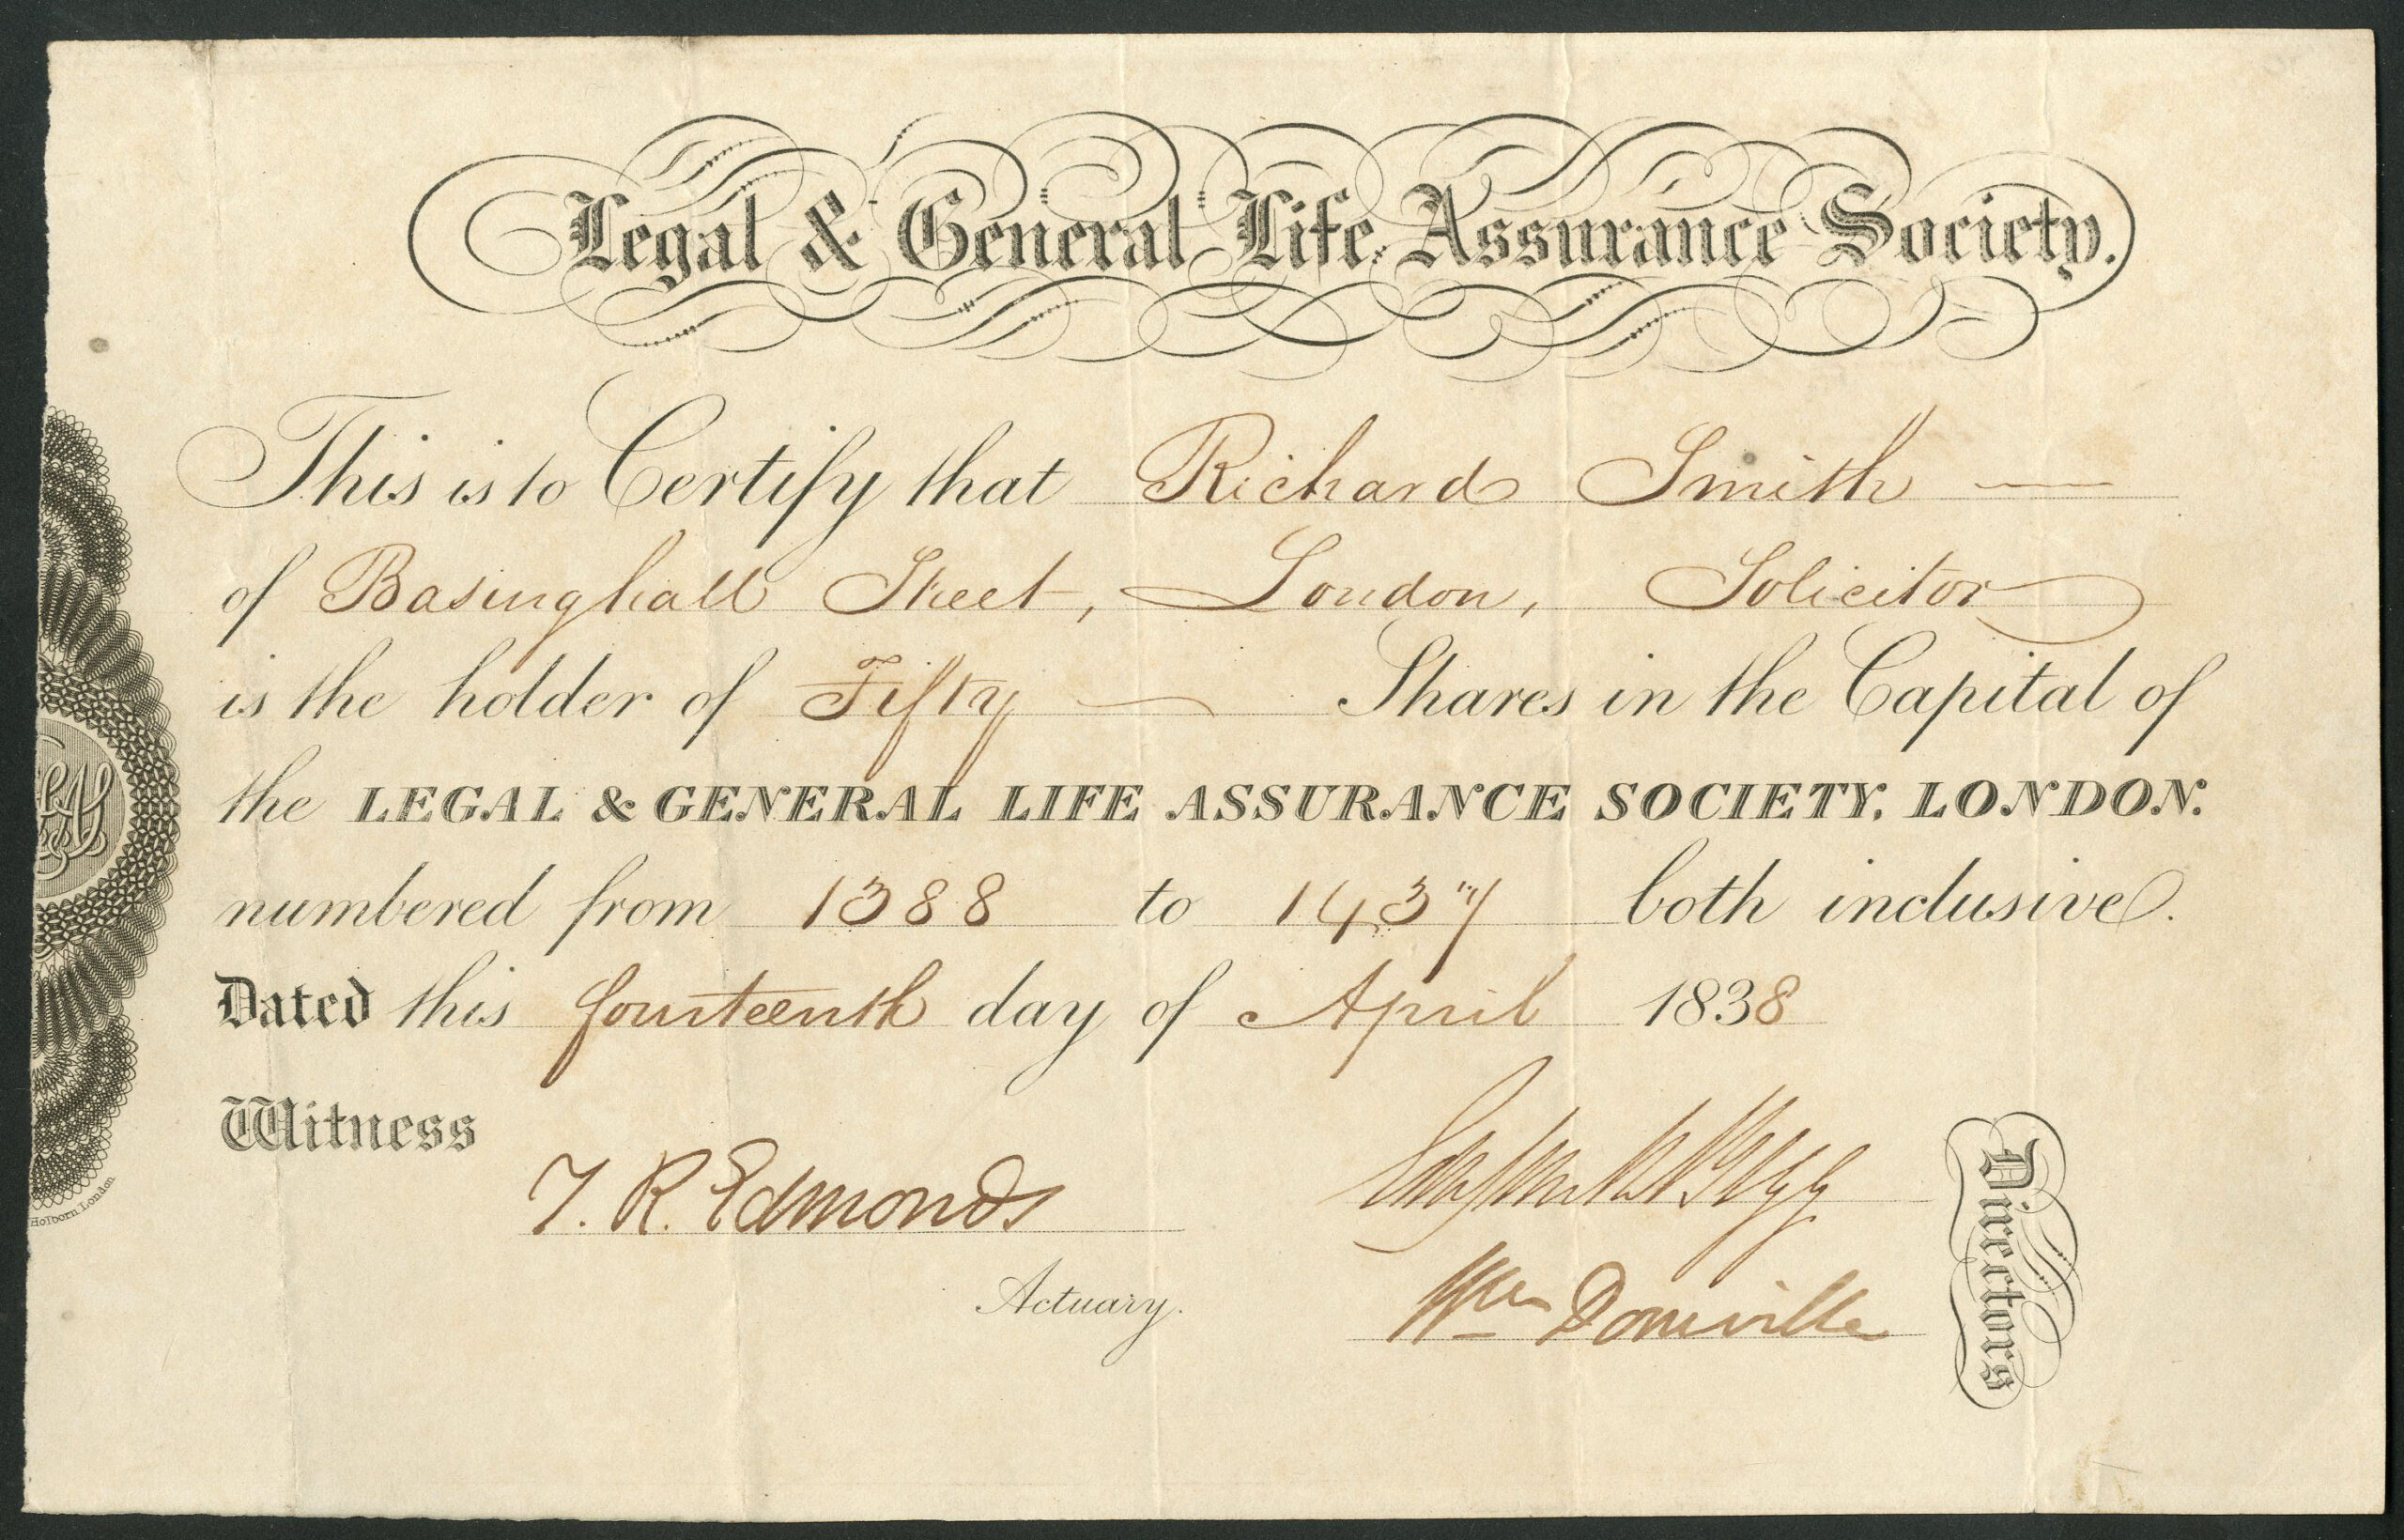 Legal & General Life Assurance Society.
This is to Certify that Richard Smith —
of Basinghall Street, London, Solicitor
is the holder of Fifty — Shares in the Capital of
the LEGAL & GENERAL LIFE ASSURANCE SOCIETY, LONDON.
numbered from 1388 to 1437 both inclusive.
Dated this fourteenth day of April 1838
Witness
T. R. Edmonds
Actuary.
Wm Domville
Directors
Holborn London